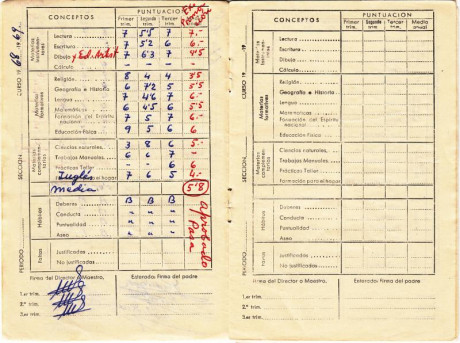 CONCEPTOS PUNTUACIÓN
Primer trim. Segundo trim. Tercer trim.
CURSO 1968 - 1969
Lectura 7 5'5 7 6.-
Escritura 7 5'2 6 6.-
Dibujo y Ed. Artist 7 6'3 7 4'5
Cálculo
Materias formativas
Religión 8 4 4 3'5
Geografía e Historia 6 7'2 5 5'5
Lengua 7 4'6 7 6.-
Matemáticas 6 4'5 6 5'5
Formación del Espíritu nacional 7 5 7 6.-
Educación Física 9 5 6 6.-
SECCION
Materias complementarias
Ciencias naturales 3 8 6 5.-
Trabajos Manuales 6 6 7 -
Prácticas Taller - - 6 6.-
Inglés 7 6 5 4.-
media 5'8
Hábitos
Deberes B B B
Conducta " " "
Trabajo " " "
Aseo " " "
Aprobado
Pasa
PERIODO
Faltas
Justificadas
No justificadas
Firma del Director o Maestro, Enterado: Firma del padre
1.er trim.
2.º trim.
3.er trim.
CONCEPTOS PUNTUACIÓN
Primer trim. Segundo trim. Tercer trim. Media anual
CURSO 19
Lectura
Escritura
Dibujo
Cálculo
Materias formativas
Religión
Geografía e Historia
Lengua
Matemáticas
Formación del Espíritu nacional
Educación Física
SECCION
Materias complementarias
Ciencias naturales,
Trabajos Manuales
Prácticas Taller
Formación para el hogar
Hábitos
Deberes
Conducta
Trabajo
Aseo
PERIODO
Faltas
Justificadas
No justificadas
Firma del Director o Maestro, Enterado: Firma del padre
1.er trim.
2.º trim.
3.er trim.